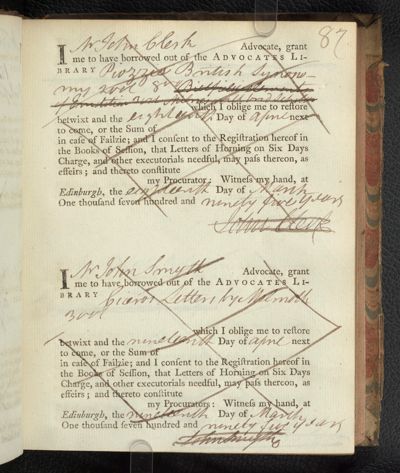 87
I Mr John Clerk Advocate, grant
me to have borrowed out of the ADVOCATES LI-
BRARY Piozzis British Synony-
my 2 vol 8º
which I oblige me to restore
betwixt and the eighteenth Day of April next
to come, or the Sum of
in case of Failzie; and I consent to the Registration hereof in
the Books of Session, that Letters of Horning on Six Days
Charge, and other executorials needful, may pass thereon, as
effeirs; and thereto constitute
my Procurator: Witness my hand, at
Edinburgh, the eighteenth Day of March
One thousand seven hundred and ninety five years
John Clerk
I Mr John Smyth Advocate, grant
me to have borrowed out of the ADVOCATES LI-
BRARY Ciceros Letters by Melmoth
3 vol
which I oblige me to restore
betwixt and the nineteenth Day of April next
to come, or the Sum of
in case of Failzie; and I consent to the Registration hereof in
the Books of Session, that Letters of Horning on Six Days
Charge, and other executorials needful, may pass thereon, as
effeirs; and thereto constitute
my Procurator: Witness my hand, at
Edinburgh, the nineteenth Day of March
One thousand seven hundred and ninety five years
John Smyth